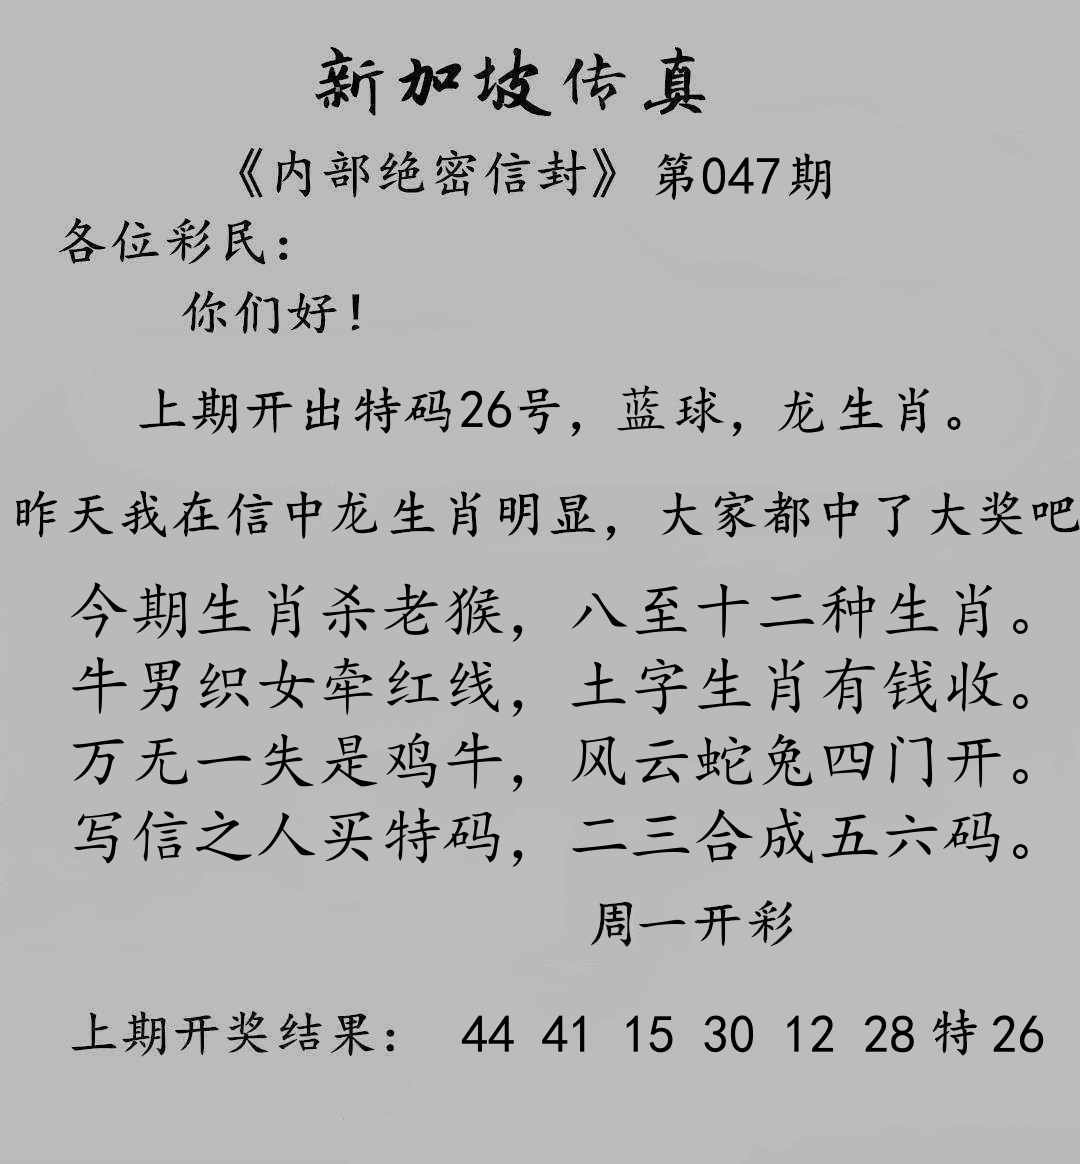 新加坡传真
《内部绝密信封》 第047期
各位彩民：
你们好！
上期开出特码26号，蓝球，龙生肖。
昨天我在信中龙生肖明显，大家都中了大奖吧
今期生肖杀老猴，八至十二种生肖。
牛男织女牵红线，土字生肖有钱收。
万无一失是鸡牛，风云蛇兔四门开。
写信之人买特码，二三合成五六码。
周一开彩
上期开奖结果： 44 41 15 30 12 28 特 26